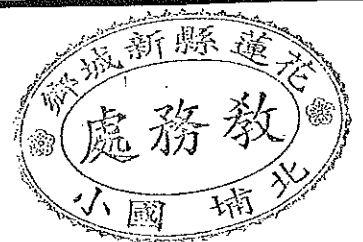 花蓮縣新城鄉
教務處
北埔國小